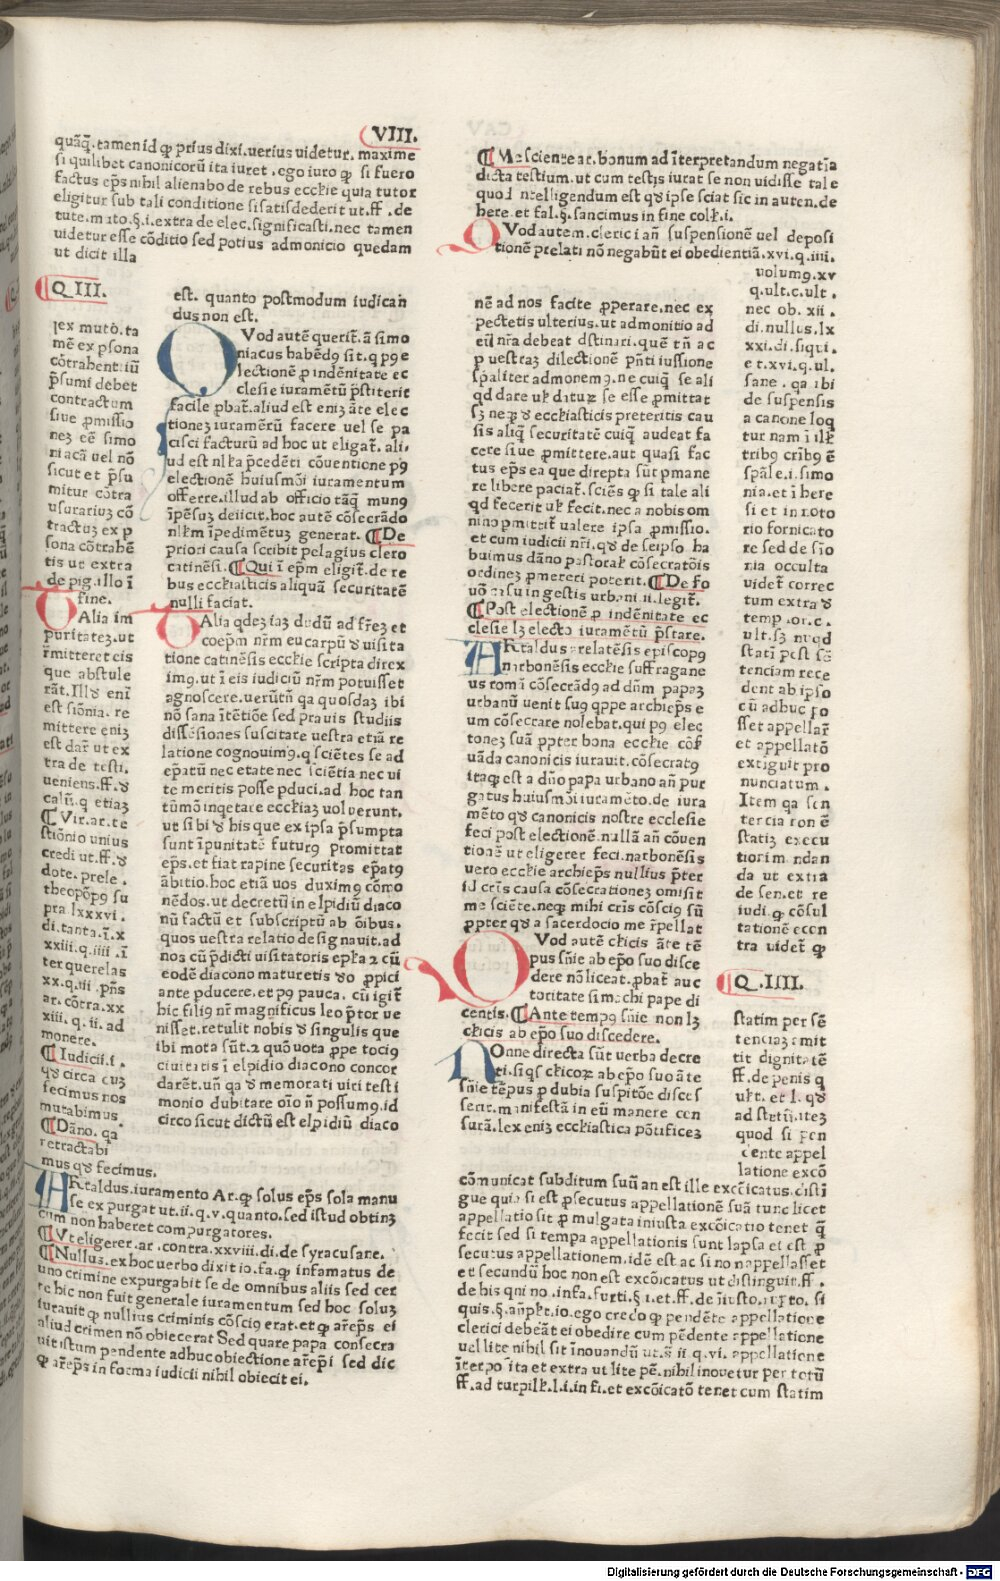 VIII.
quāq̄.tamen id ꝙ prius dixi.uerius uidetur. maxime
si quilibet canonicorū ita iuret. ego iuro ꝙ si fuero
factus ep̄s nihil alienabo de rebus ecclie quia tutor
eligitur sub tali conditione si satisdederit ut.ff.de
tute.m ito.§.i.extra de elec.significasti.nec tamen
uidetur esse cōditio sed potius admonicio quedam
ut dicit illa
Q III.
lex muto.ta
mē ex psona
cōtrahent.iū
p̄sumi debet
contractum
siue ꝓmissio
neꝫ eē simo
niacā uel nō
sicut et p̄su
mitur cōtra
usurariuꝫ cō
tractus ex p
sona cōtrahē
tis ut extra
de pig.illo ī
fine.
Alia im
puritateꝫ.ut
r̄mitteret eis
que abstule
rāt.Illud enī
est siōnia. re
mittere eniꝫ
est dar̄ ut ex
tra de testi.
ueniens.ff.d
calū.q etiaꝫ
¶ Vir.ar.te
stiōnio unius
credi ut.ff.d
dote.prele.
theopōpꝯ su
pra.lxxxvi.
di.tanta.ī.x
xxiii.q.iiii.ī
ter querelas
xx.q.iii.pn̄s
ar.cōtra.xx
xiii.q.ii.ad
monere.
¶ Iudicii.i.
qd circa cuꝫ
fecimus nos
mutabimus
¶ Dāno.qa
retractabi
mus qd fecimus.
est. quanto postmodum iudican
dus non est.
QVod autē querit̄.ā simo
niacus habēdꝯ sit.q pꝯ e
lectionē ꝓ indēnitate ec
clesie iuramētū p̄stiterit
facile ꝓbat̄.aliud est eniꝫ āte elec
tioneꝫ iuramētū facere uel se pa
cisci facturū ad hoc ut eligat̄. ali
ud est nlla p̄cedēti cōuentione pꝯ
electionē huiusmōi iuramentum
offerre.illud ab officio tāq̄ munꝯ
īpēsuꝫ deiicit.hoc autē cōsecrādo
nllm īpedimētuꝫ generat. ¶ De
priori causa scribit pelagius clero
catinēsi. ¶ Qui ī epm̄ eligit̄.de re
bus ecclesiasticis aliquā securitatē
nulli faciat.
TAlia qdeꝫ iaꝫ dudū ad fr̄eꝫ et
coepm̄ nr̄m eucarpū d uisita
tione catinēsis ecclie scripta direx
imꝯ.ut ī eis iudiciū nr̄m potuisset
agnoscere.uerūtn̄ qa quosdaꝫ ibi
nō sana ītētiōe sed prauis studiis
dissēsiones suscitate uestra etiā re
latione cognouimꝯ.q sciētes se ad
ep̄atū nec etate nec sciētia nec ui
te meritis posse pduci.ad hoc tan
tūmō inqetare eccliaꝫ uoluerunt.
ut sibi d his que ex ipsa p̄sumpta
sunt īpunitatē futurꝯ promittat
ep̄s.et fiat rapine securitas ep̄atꝯ
ābitio.hoc etiā uos duximꝯ cōmo
nēdos.ut decretū in elpidiū diaco
nū factū et subscriptū ab ōibus.
quos uestra relatio designauit.ad
nos cū p̄dicti uisitatoris epl̄a 2 cū
eodē diacono maturetis do ꝓpici
ante pducere.et pꝯ pauca. cū igit̄
hic filiꝯ nr̄ magnificus leo p̄tor ue
nisset.retulit nobis d singulis que
ibi mota sūt.2 quō uota ꝓpe tociꝯ
ciuitatis ī elpidio diacono concor
darēt.un̄ qa d memorati uiri testi
monio dubitare oīo n̄ possumꝯ.id
circo sicut dictū est elpidiū diaco
ARtaldus.iuramento Ar.ꝙ solus ep̄s sola manu
se ex purgat ut.ii.q.v.quanto.sed istud obtinꝫ
cum non haberet compurgatores.
¶ Vt eligerer.ar.contra.xxviii.di.de syracusane.
¶ Nullus.ex hoc uerbo dixit io.fa.ꝙ infamatus de
uno crimine expurgabit se de omnibus aliis sed cer
te hic non fuit generale iuramentum sed hoc soluꝫ
iurauit ꝙ nullius criminis cōsciꝯ erat.et ꝙ ar̄ep̄s ei
aliud crimen nō obiecerat Sed quare papa consecra
uit istum pendente adhuc obiectione ar̄epī sed dic
ꝙ ar̄ep̄s in forma iudicii nihil obiecit ei.
¶ Me sciente ar.bonum ad īterpretandum negatīa
dicta testium.ut cum testis iurat se non uidisse tale
quod intelligendum est qd ipse sciat sic in auten.de
here.et fal.§.sancimus in fine coll.i.
QVod autem.clerici an̄ suspensionē uel deposi
tionē prelati nō negabūt ei obedientiā.xvi.q.iiii.
uolumꝯ.xv
q.ult.c.ult.
nec ob. xii.
di.nullus.lx
xxi.di.siqui.
et.xvi.q.ul.
sane. qa ibi
de suspensis
a canone loq
tur nam ī ill
tribꝯ crībꝯ ē
spāle.i.simo
nia.et ī here
si et in noto
rio fornicato
re sed de sīo
nia occulta
uidet̄ correc
tum extra d
temp.or.c.
ult.sꝫ nūqd
statī post sē
tenciam rece
dent ab ipso
cū adhuc po
sset appellar̄
et appellatō
extiguit pro
nunciatum.
Item qa sen
tercia non ē
statiꝫ execu
tiori mandan
da ut extra
de sen.et re
iudi.ꝙ cōsul
tationē econ
tra uidet̄ ꝙ
nē ad nos facite ꝓperare.nec ex
pectetis ulterius.ut admonitio ad
eū nr̄a debeat dstinari.quē tn̄ ac
p uestraꝫ dilectionē pn̄ti iussione
sp̄aliter admonemꝯ.ne cuiq̄ se ali
qd dare ul dituꝝ se esse ꝓmittat
sꝫ neqꝫ d ecclesiasticis preteritis cau
sis aliq̄ securitatē cuiq̄ audeat fa
cere siue ꝓmittere.aut quasi fac
tus ep̄s ea que direpta sūt pmane
re libere paciat̄.sciēs ꝙ si tale ali
qd fecerit ul fecit.nec a nobis om
nino pmittit̄ ualere ipsa ꝓmissio.
et cum iudicii nr̄i.qd de seipso ha
buimus dāno pastoral cōsecratōis
ordineꝫ ꝓmereri poterit. ¶ De fo
uō casu in gestis urbani.ii.legit̄.
¶ Post electionē ꝓ indēnitate ec
clesie lꝫ electo iuramētū p̄stare.
ARtaldus arelatēsis episcopꝯ
narbonēsis ecclie suffragane
us romā cōsecrādꝯ ad dn̄m papaꝫ
urbanū uenit suꝯ qppe archiep̄s e
um cōsecrare nolebat.qui pꝯ elec
toneꝫ suā ꝓpter bona ecclie cōs̄
uāda canonicis iurauit.cōsecratꝯ
itaqꝫ est a dn̄o papa urbano an̄ pur
gatus huiusmōi iuramēto.de iura
mēto qd canonicis nostre ecclesie
feci post electionē.nullā an̄ cōuen
tionē ut eligerer feci.narbonēsis
uero ecclie archiep̄s nullius p̄ter
id crīs causa cōsecrationeꝫ omisit
me sciēte.neqꝫ mihi crīs cōsciꝯ sū
ꝓpter qd a sacerdocio me r̄pellat
QVod autē clicis āte tē
pus sn̄ie ab ep̄o suo disce
dere nō liceat.ꝓbat̄ auc
toritate simachi pape di
centis. ¶ Ante tempꝯ sn̄ie non lꝫ
clicis ab ep̄o suo discedere.
NOnne directa sūt uerba decre
ti.siqs clicoꝝ ab ep̄o suo āte
sn̄ie tēpus p dubia suspitōe disces
serit.manifestā in eū manere cen
surā.lex eniꝫ ecclesiastica pōtificeꝫ
Q.IIII.
statim per sē
tenciaꝫ amit
tit dignitatē
ff.de penis q
ult.et l. qd
ad statū.iteꝫ
quod si pen
dente appel
latione excō
cōmunicat subditum suū an est ille excōicatus.distī
gue quia si est ꝓsecutus appellationē suā tunc licet
appellatio sit ꝓmulgata iniusta excōicatio tenet q̄
fecit sed si tempa appellationis sunt lapsa et est ꝓ
secutus appellationem.idē est ac si no nappellasset
et secundū hoc non est excōicatus ut distinguit.ff.
de his qui no.infa.furti.§ 1.et.ff.de īiusto.rupto. si
quis.§.an̄pl.io.ego credo ꝙ pendēte appellatione
clerici debeāt ei obedire cum pēdente appellatione
uel lite nihil sit īnouandū ut.s̄ ii.q.vi. appellatione
īterpoīta et extra ut lite pē.nihil inouetur per totū
ff.ad turpill.l.i.in fi.et excōicatō tenet cum statim
Digitalisierung gefördert durch die Deutsche Forschungsgemeinschaft - DFG